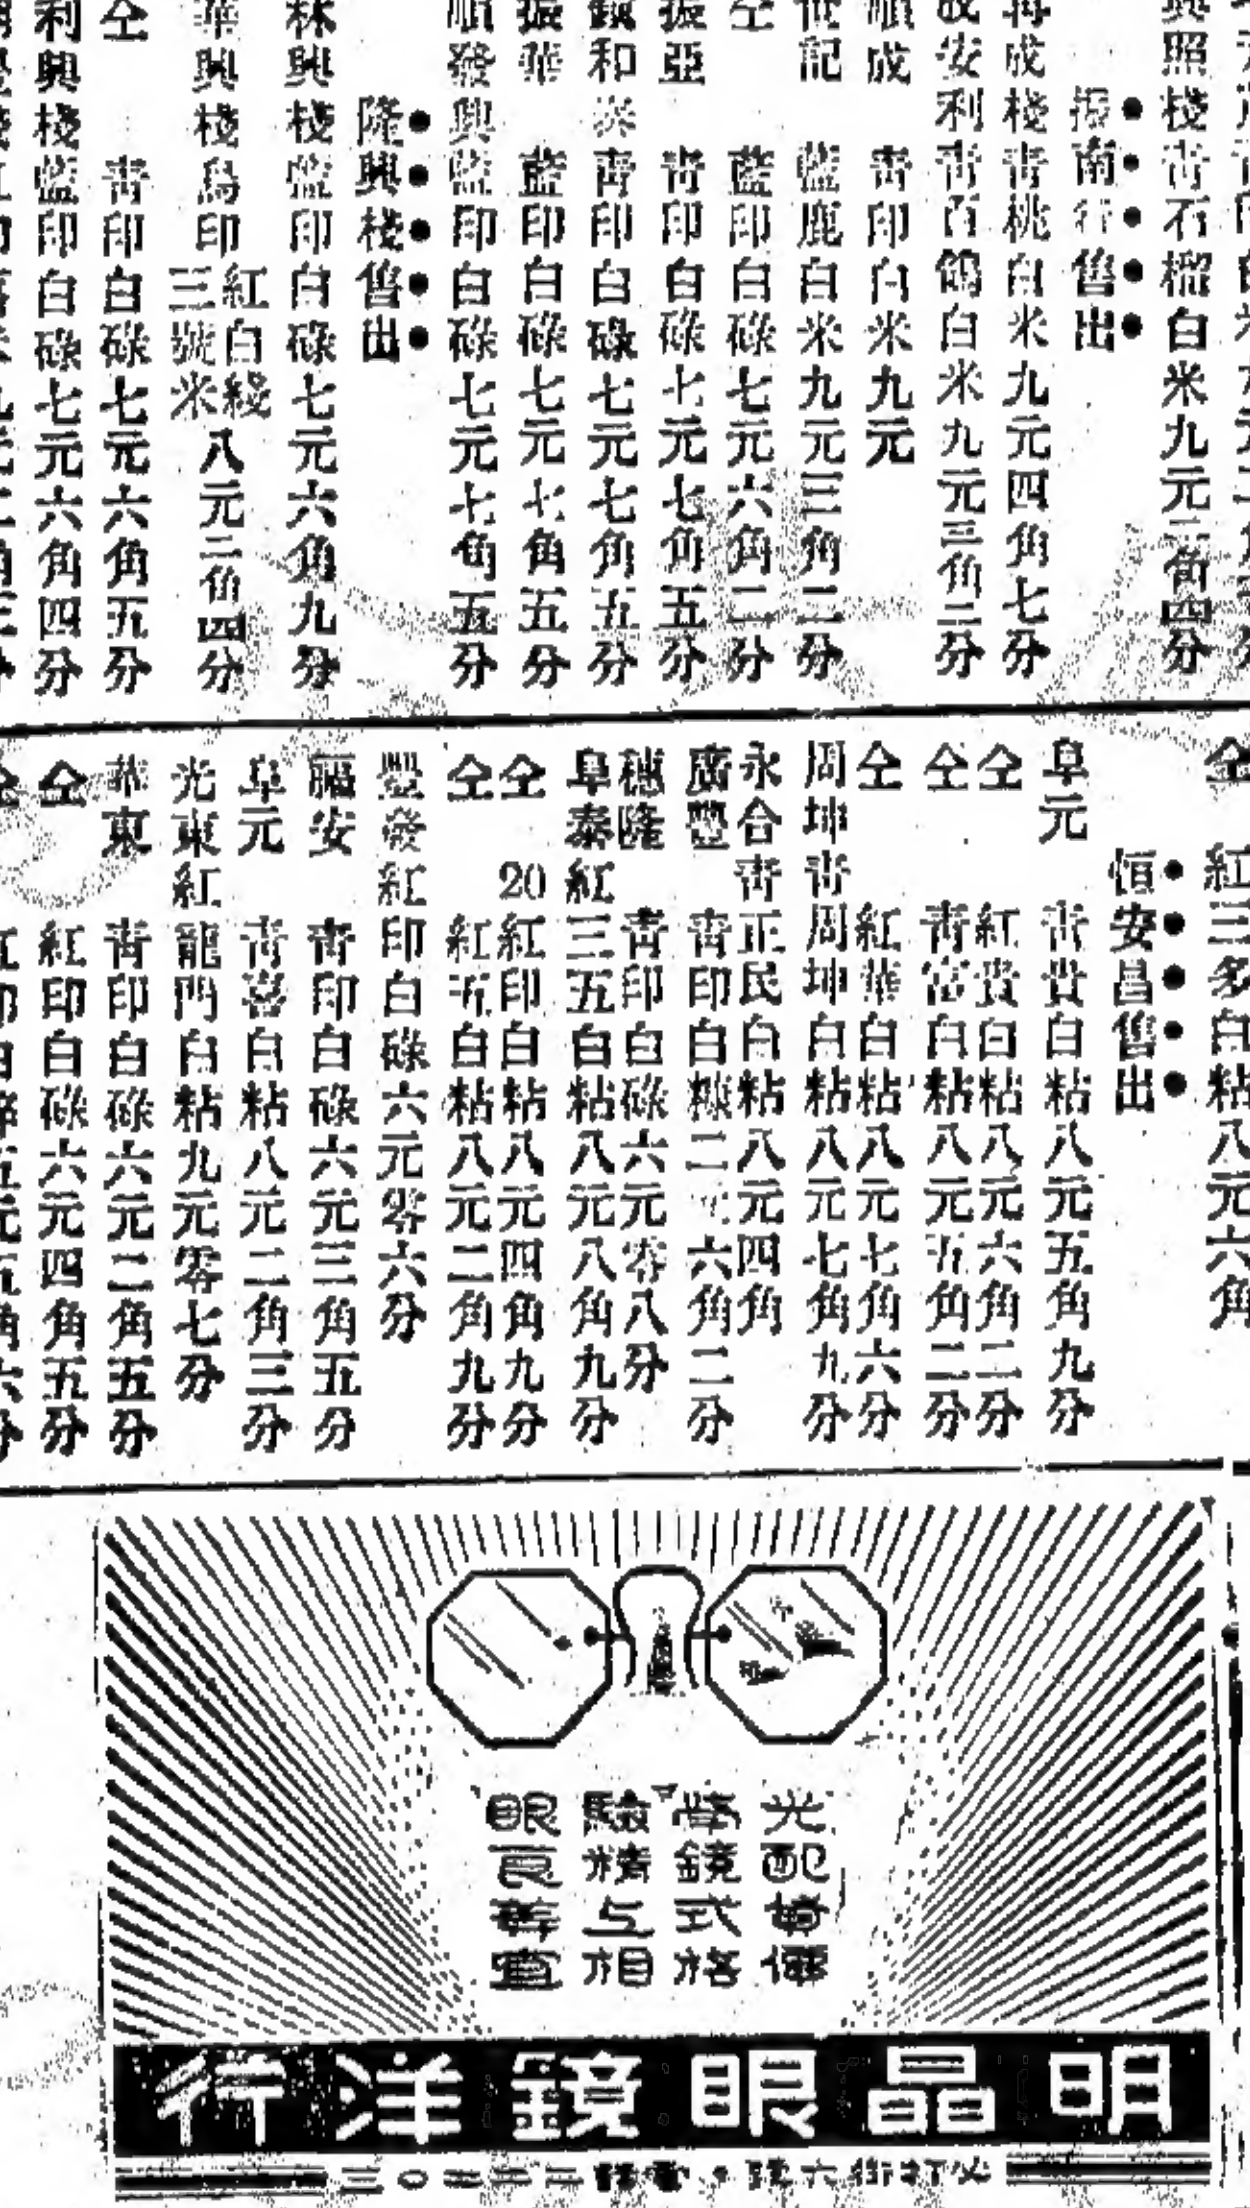 興照棧青石榴白米九元二角四分
振南行售出
再成棧青桃白米九元四角七分
成安利青百鶴白米九元三角二分
順成 青印白米九元
世記 藍鹿白米九元三角二分
仝 藍印白碌七元六角二分
振亞 青印白碌七元七角五分
鎮和 青印白碌七元七角五分
振華 藍印白碌七元七角五分
順發興藍印白碌七元七角五分
隆興棧售出
林興棧藍印白碌七元六角九分
華興棧鳥印紅白綫三號米八元二角四分
仝 青印白碌七元六角五分
利興棧藍印白碌七元六角四分
仝 紅三多白粘八元六角
恒安昌售出
阜元 青貴白粘八元五角九分
仝 紅貴白粘八元六角二分
仝 青富白粘八元五角二分
仝 紅華白粘八元七角六分
周坤青周坤白粘八元七角九分
永合青正民白粘八元四角
廣豐 青印白糠二元六角二分
穗隆 青印白碌六元零八分
阜泰紅三五白粘八元八角九分
仝 20紅印白粘八元四角九分
仝 紅五白粘八元二角九分
豐發紅印白碌六元零六分
福安 青印白碌六元三角五分
阜元 青喜白粘八元二角三分
光東紅龍門白粘九元零七分
華東 青印白碌六元二角五分
仝 紅印白碌六元四角五分
光學驗眼
配鏡精良
式上等
價格相宜
明晶眼鏡洋行
必打街六號